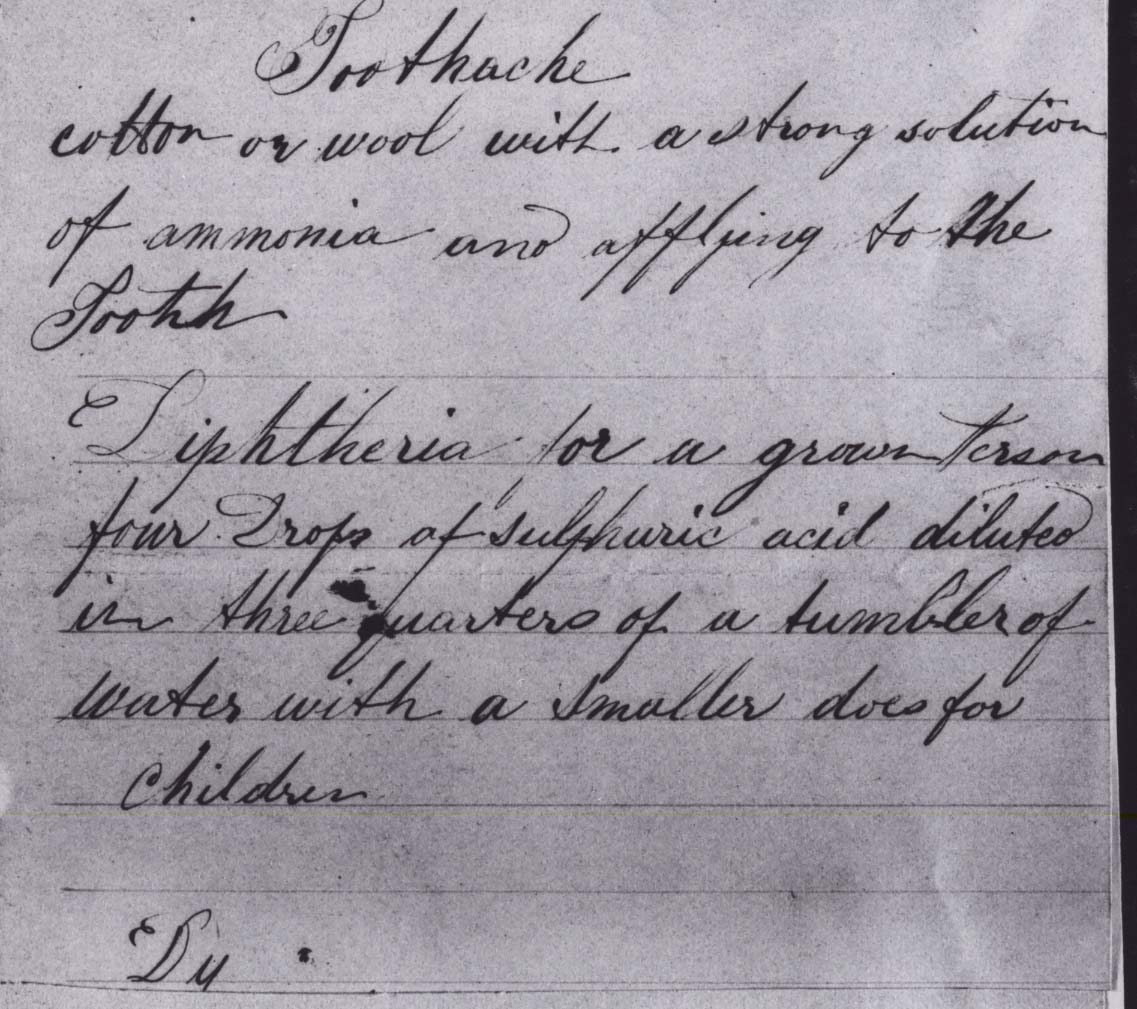 Toothache
cotton or wool with a strong solution
of ammonia and applying to the
Tooth
Diphtheria for a grown Person
four Drops of sulphuric acid diluted
in three quarters of a tumbler of
water with a smaller does for
children
Dy